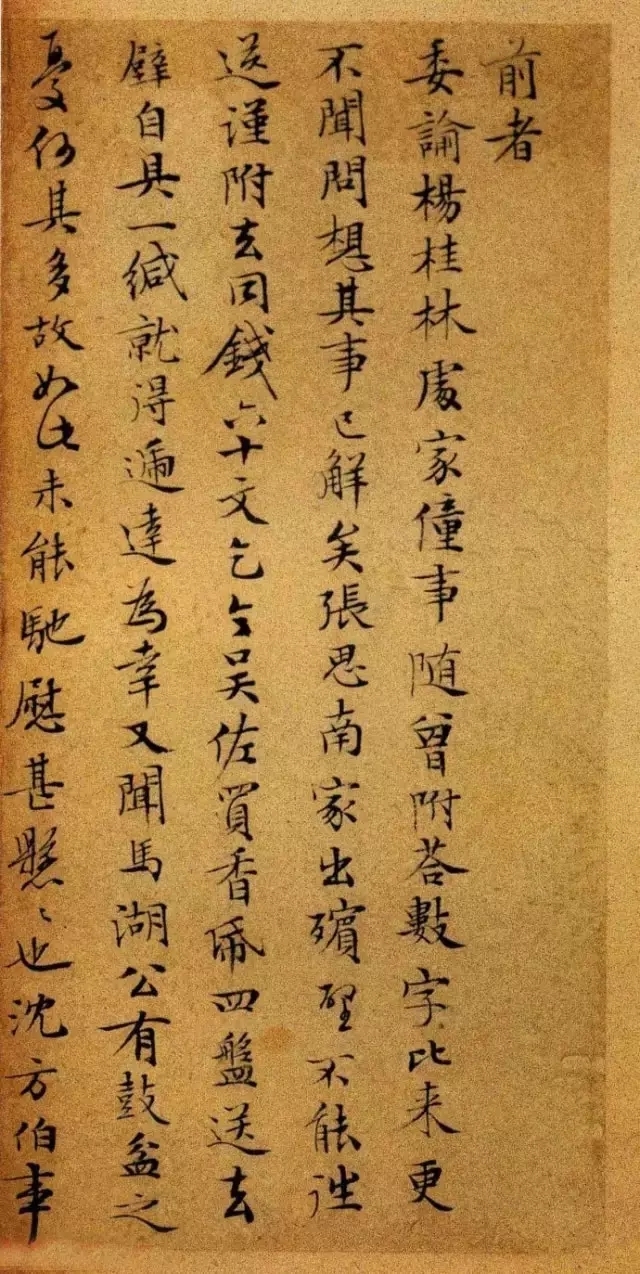 前者
委論楊桂林處家僮事随曾附荅數字比来更
不聞問想其事已解矣張思南家出殯瑆不能徃
送谨附去同錢六十文乞令吴佐買香帋四盤送去
璧自具一緘就得遞達為幸又聞馬湖公有鼓盆之
憂何其多故如此未能馳慰甚懸〻也沈方伯事